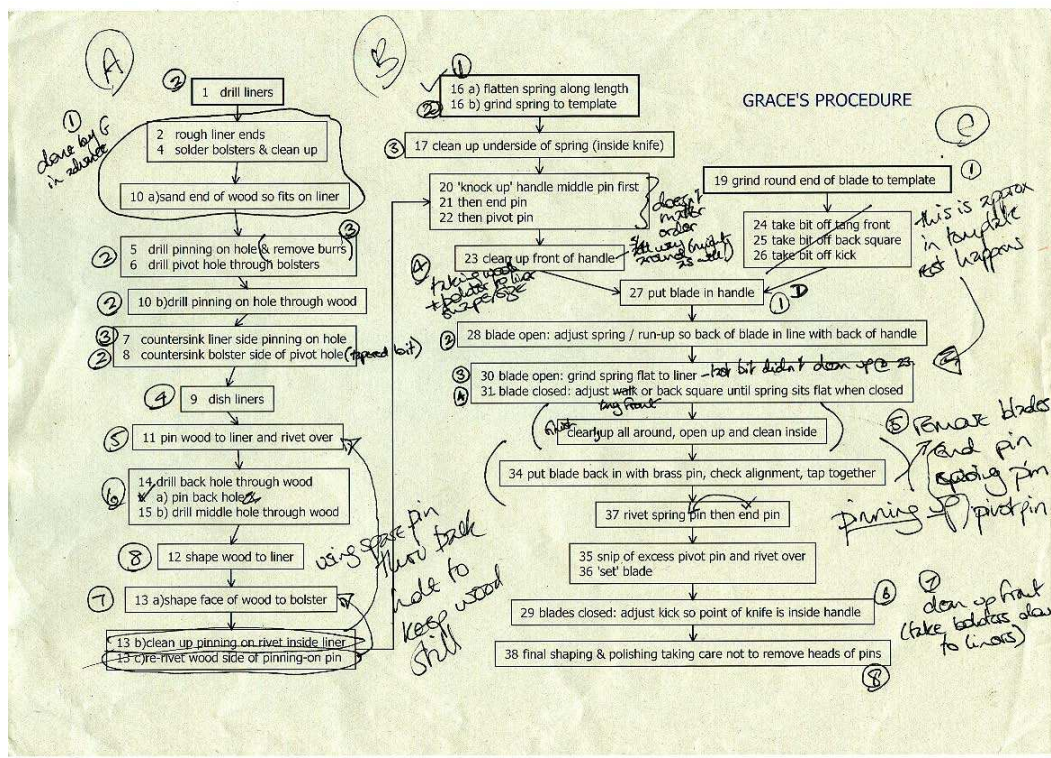 A
B
GRACE'S PROCEDURE
C
2
1 drill liners
1
done by G
in advance
2 rough liner ends
4 solder bolsters & clean up
10 a)sand end of wood so fits on liner
3
2
5 drill pinning on hole (& remove burrs)
6 drill pivot hole through bolsters
2
10 b)drill pinning on hole through wood
3
7 countersink liner side pinning on hole
2
8 countersink bolster side of pivot hole (tapered bit)
4
9 dish liners
5
11 pin wood to liner and rivet over
6
14 drill back hole through wood
a) pin back hole
15 b) drill middle hole through wood
8
12 shape wood to liner
7
13 a)shape face of wood to bolster
13 b)clean up pinning on rivet inside liner
13 c)re-rivet wood side of pinning-on pin
using spare pin
thro back
hole to
keep wood
still
1
16 a) flatten spring along length
2
16 b) grind spring to template
3
17 clean up underside of spring (inside knife)
20 'knock up' handle middle pin first
21 then end pin
22 then pivot pin
doesn't
matter
order
4
23 clean up front of handle
taking wood
+ bolster to liner
1
19 grind round end of blade to template
24 take bit off tang front
25 take bit off back square
26 take bit off kick
this is approx
in template
rest happens
27 put blade in handle
1
D
2
28 blade open: adjust spring / run-up so back of blade in line with back of handle
3
30 blade open: grind spring flat to liner - bit didn't clean up @ 23
4
31 blade closed: adjust walk or back square until spring sits flat when closed
tang front
clean up all around, open up and clean inside
34 put blade back in with brass pin, check alignment, tap together
5
remove blades
end pin
spring pin
pivot pin
pinning up
37 rivet spring pin then end pin
35 snip of excess pivot pin and rivet over
36 'set' blade
6
29 blades closed: adjust kick so point of knife is inside handle
7
clean up front
(take bolsters down
to liners)
38 final shaping & polishing taking care not to remove heads of pins
8